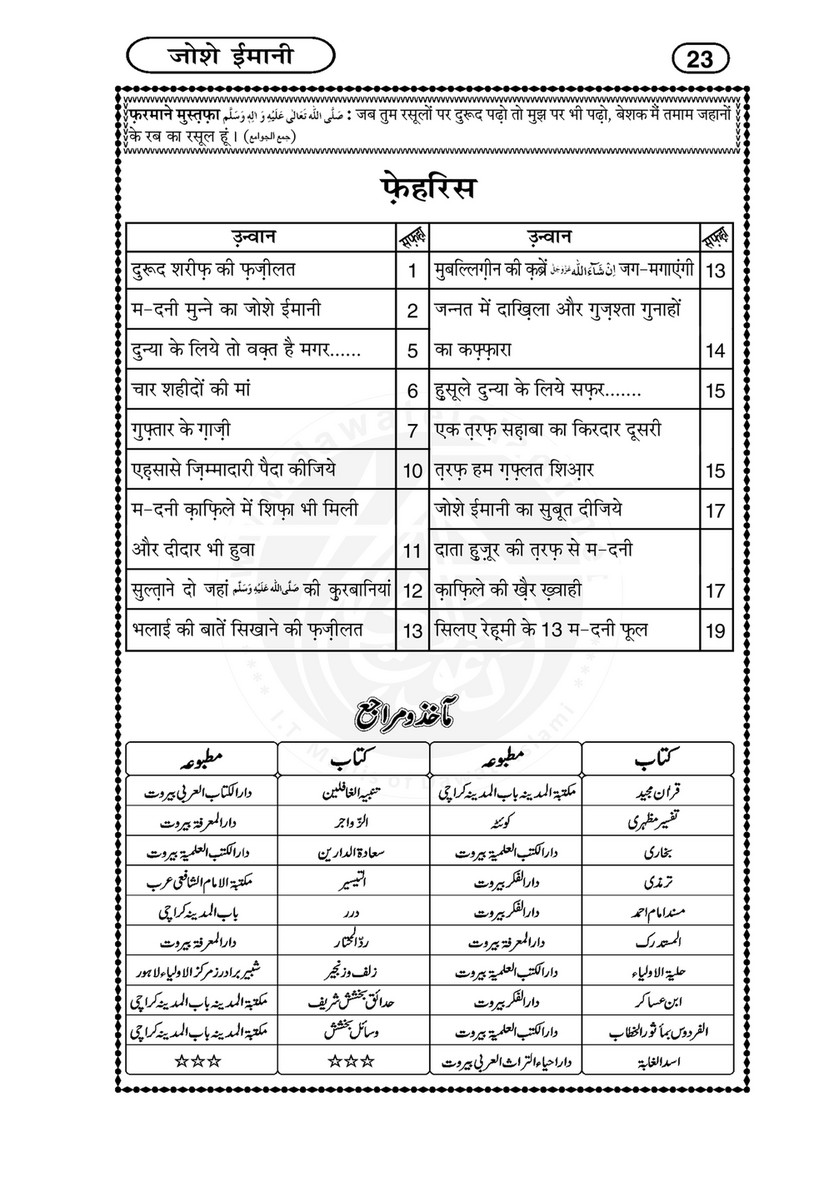 जोशे ईमानी
23
फ़रमाने मुस्त़फ़ा صَلَّى اللهُ تَعَالٰى عَلَيْهِ وَ اٰلِهٖ وَسَلَّم : जब तुम रसूलों पर दुरूद पढ़ो तो मुझ पर भी पढ़ो, बेशक मैं तमाम जहानों
के रब का रसूल हूं । (جمع الجوامع)
फ़ेहरिस
उ़न्वान सफ़्ह़ा उ़न्वान सफ़्ह़ा
दुरूद शरीफ़ की फ़ज़ीलत 1 मुबल्लिग़ीन की क़ब्रें اِنْ شَآءَ اللّٰه عَزَّوَجَلَّ जग-मगाएंगी 13
म-दनी मुन्ने का जोशे ईमानी 2 जन्नत में दाख़िला और गुज़श्ता गुनाहों
दुन्या के लिये तो वक़्त है मगर...... 5 का कफ़्फ़ारा 14
चार शहीदों की मां 6 हु़सूले दुन्या के लिये सफ़र....... 15
गुफ़्तार के ग़ाज़ी 7 एक त़रफ़ सह़ाबा का किरदार दूसरी
एह़सासे ज़िम्मादारी पैदा कीजिये 10 त़रफ़ हम ग़फ़्लत शिआ़र 15
म-दनी क़ाफ़िले में शिफ़ा भी मिली जोशे ईमानी का सुबूत दीजिये 17
और दीदार भी हुवा 11 दाता हु़ज़ूर की त़रफ़ से म-दनी
सुल्त़ाने दो जहां صَلَّى اللهُ عَلَيْهِ وَسَلَّم की कुरबानियां 12 क़ाफ़िले की ख़ैर ख़्वाही 17
भलाई की बातें सिखाने की फ़ज़ीलत 13 सिलए रेह़्मी के 13 म-दनी फूल 19
مآخذ و مراجع
کتاب مطبوعہ کتاب مطبوعہ
قران مجید مکتبۃ المدینہ باب المدینہ کراچی تنبیہ الغافلین دار الکتاب العربی بیروت
تفسیر مظہری کوئٹہ الزواجر دار المعرفۃ بیروت
بخاری دار الکتب العلمیۃ بیروت سعادۃ الدارین دار الکتب العلمیۃ بیروت
ترمذی دار الفکر بیروت التیسیر مکتبۃ الامام الشافعی عرب
مسند امام احمد دار الفکر بیروت درر باب المدینہ کراچی
المستدرک دار المعرفۃ بیروت ردّ المحتار دار المعرفۃ بیروت
حلیۃ الاولیاء دار الکتب العلمیۃ بیروت زلف و زنجیر شبیر برادرز مرکز الاولیاء لاہور
ابن عساکر دار الفکر بیروت حدائق بخشش شریف مکتبۃ المدینہ باب المدینہ کراچی
الفردوس بمأثور الخطاب دار الکتب العلمیۃ بیروت وسائل بخشش مکتبۃ المدینہ باب المدینہ کراچی
اسد الغابۃ دار احیاء التراث العربی بیروت ☆☆☆ ☆☆☆